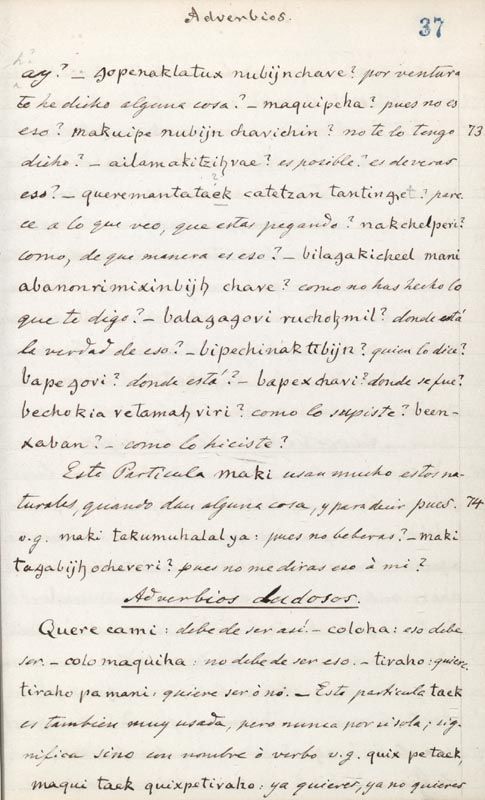 Adverbios.
37
h?
ay? – gopenaklatux nubijnchave? por ventura
te he dicho alguna cosa? – maquipeha? pues no es
eso? makuipe nubijn chavichin? no te lo tengo 73
dicho? – ailamakitzihvae? es posible? es deveras
eso? – queremantataek catetzan tantinget? pare-
ce a lo que veo, que estas pegando? nakchelperi?
como, de que manera es eso? – bilagakicheel mani
abanonrimixinbijh chave? como no has hecho lo
que te digo? – balagagovi ruchohmil? donde está
la verdad de eso? – bipechinaktibijn? quien lo dice?
bapegovi? donde está? – bapexchavi? donde se fue?
bechokia vetamahviri? como lo supiste? been-
xaban? – como lo hiciste?
Esta Particula maki usan mucho estos na-
turales, quando dan alguna cosa, y para decir pues. 74
v.g. maki takumuhalalya: pues no beberas? – maki
tagabijhocheveri? pues no me diras eso à mi?
Adverbios dudosos.
Quere cami: debe de ser así. – coloha: eso debe
ser. – colo maquiha: no debe de ser eso. – tiraho: quiere
tiraho pa mani: quiere ser ò nó. – Esta particula taek
es tambien muy usada, pero nunca por si sola; sig-
nifica sino con nombre ò verbo v.g. quix pe taek,
maqui taek quixpetiraho: ya quieres, ya no quieres